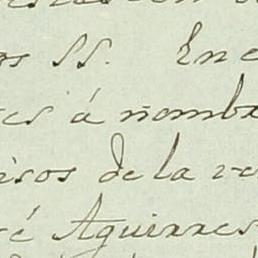 os SS. En e
es á nombr
isos de la ve
é Aguirres